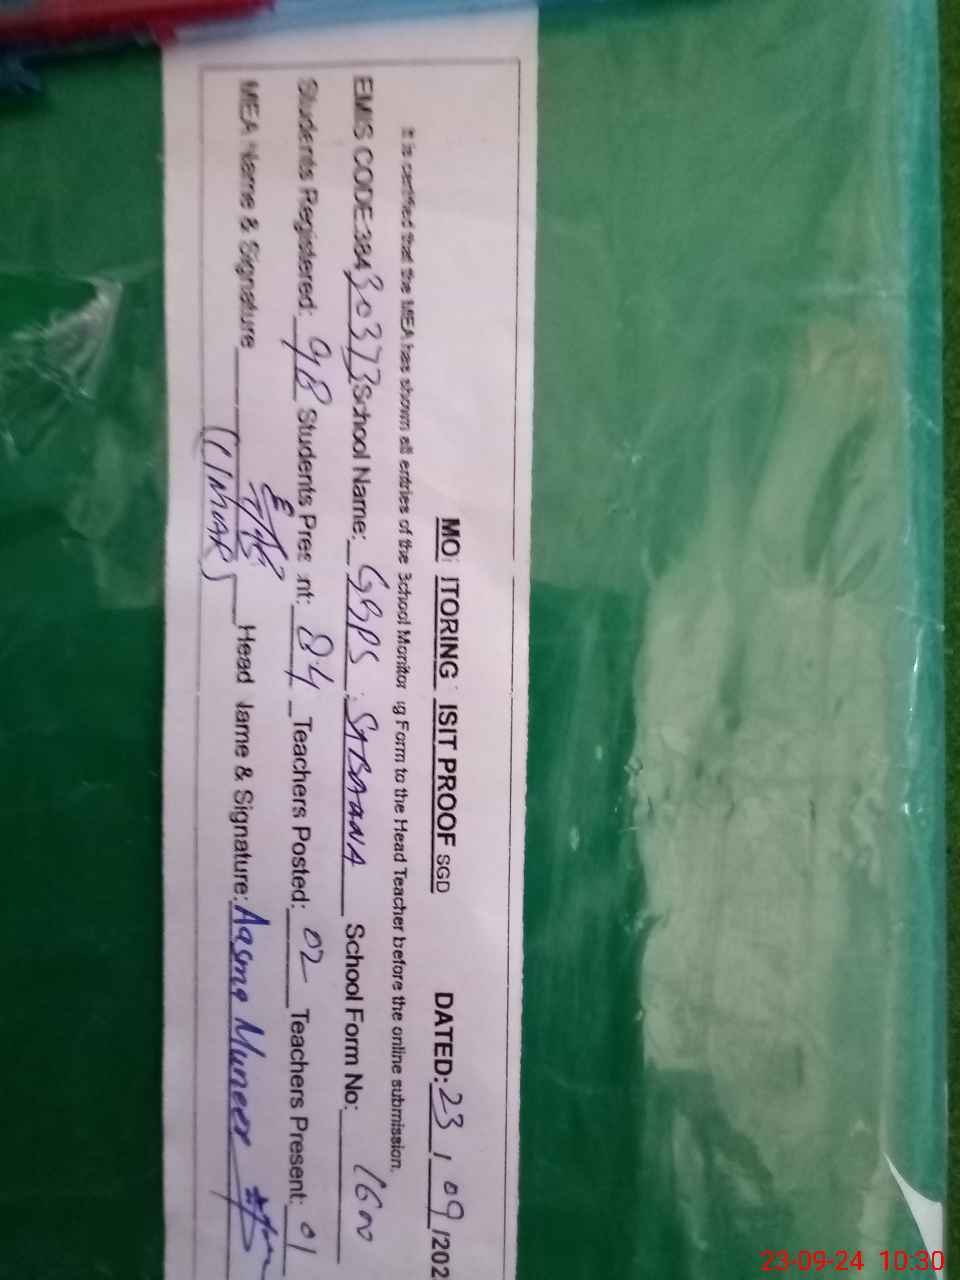 MO ITORING ISIT PROOF SGD DATED: 23 / 09 /202
It is certified that the MEA has shown all entries of the School Monitor g Form to the Head Teacher before the online submission.
EMIS CODE:38430373 School Name: GGPS SABAANA School Form No: 1600
Students Registered: 98 Students Pres nt: 84 Teachers Posted: 02 Teachers Present: 01
MEA Name & Signature Head Name & Signature: Aasma Muneer
23-09-24 10:30